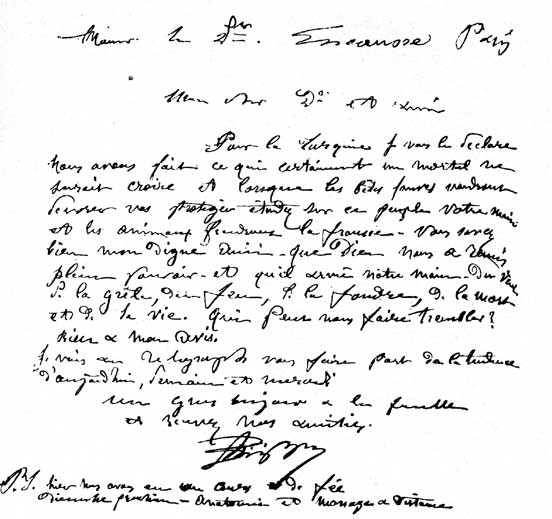 le Dr. Encausse Paris
Mon cher Dr et ami
Pour la turquie je vous le déclare
nous avons fait ce qui certainement un mortel ne
saurait croire et lorsque les bêtes fauves voudront
dévorer vos protéger étudy sur ce peuple votre main
et les animaux la - Vous savez
bien mon digne Amis - que Dieu nous a remis
plein pouvoir - et qu'il arme notre main - Du
D. la grêle, du feu, D. la foudre, D. la mort
et D. la vie. Qui peux nous faire trembler?
Rien a mon Devis.
Je vais au vous faire part de la
D'aujourd'hui, Demain et mercredi
Un gros bonjour a la famille
et recevez nos amitiés.
P.S. hier nous avons eu un cours de fée
- Anatomie et Massages a Distance